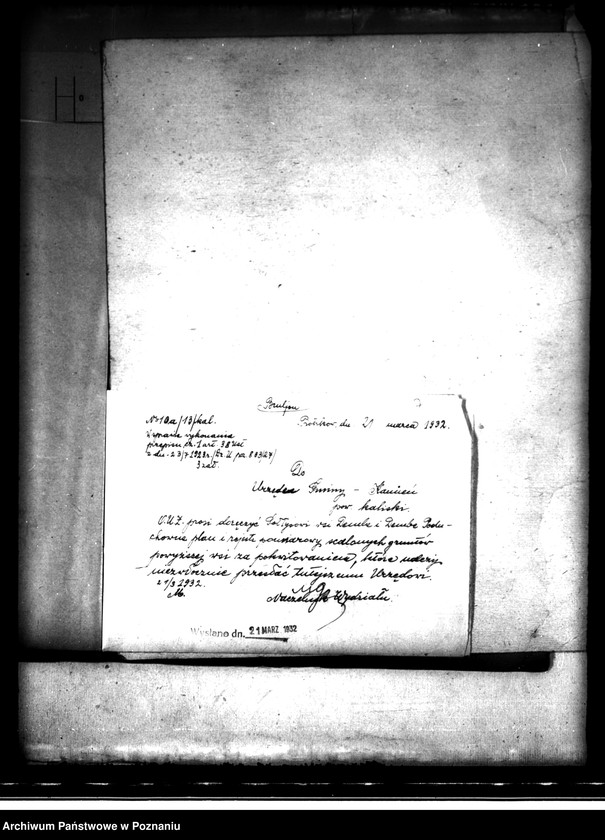 Nr 10a/13/kal.
W sprawie wykonania
przepisu cz. 1 art. 38 Ust.
z dn. 23/7 1928 r. /Dz. U. poz. 833/27/
3 zał.
dn. 21 marca 1932.
Do
Urzędu Gminy - Kamień
pow. kaliski.
O.U.Z. prosi doręczyć Sołtysowi wsi
plan i rejestr pomiarowy scalonych gruntów
powyższej wsi za pokwitowaniem, które należy
niezwłocznie przesłać tutejszemu Urzędowi.
21/3 1932.
Naczelnik Wydziału.
Wysłano dn. 21 MARZ 1932
Archiwum Państwowe w Poznaniu